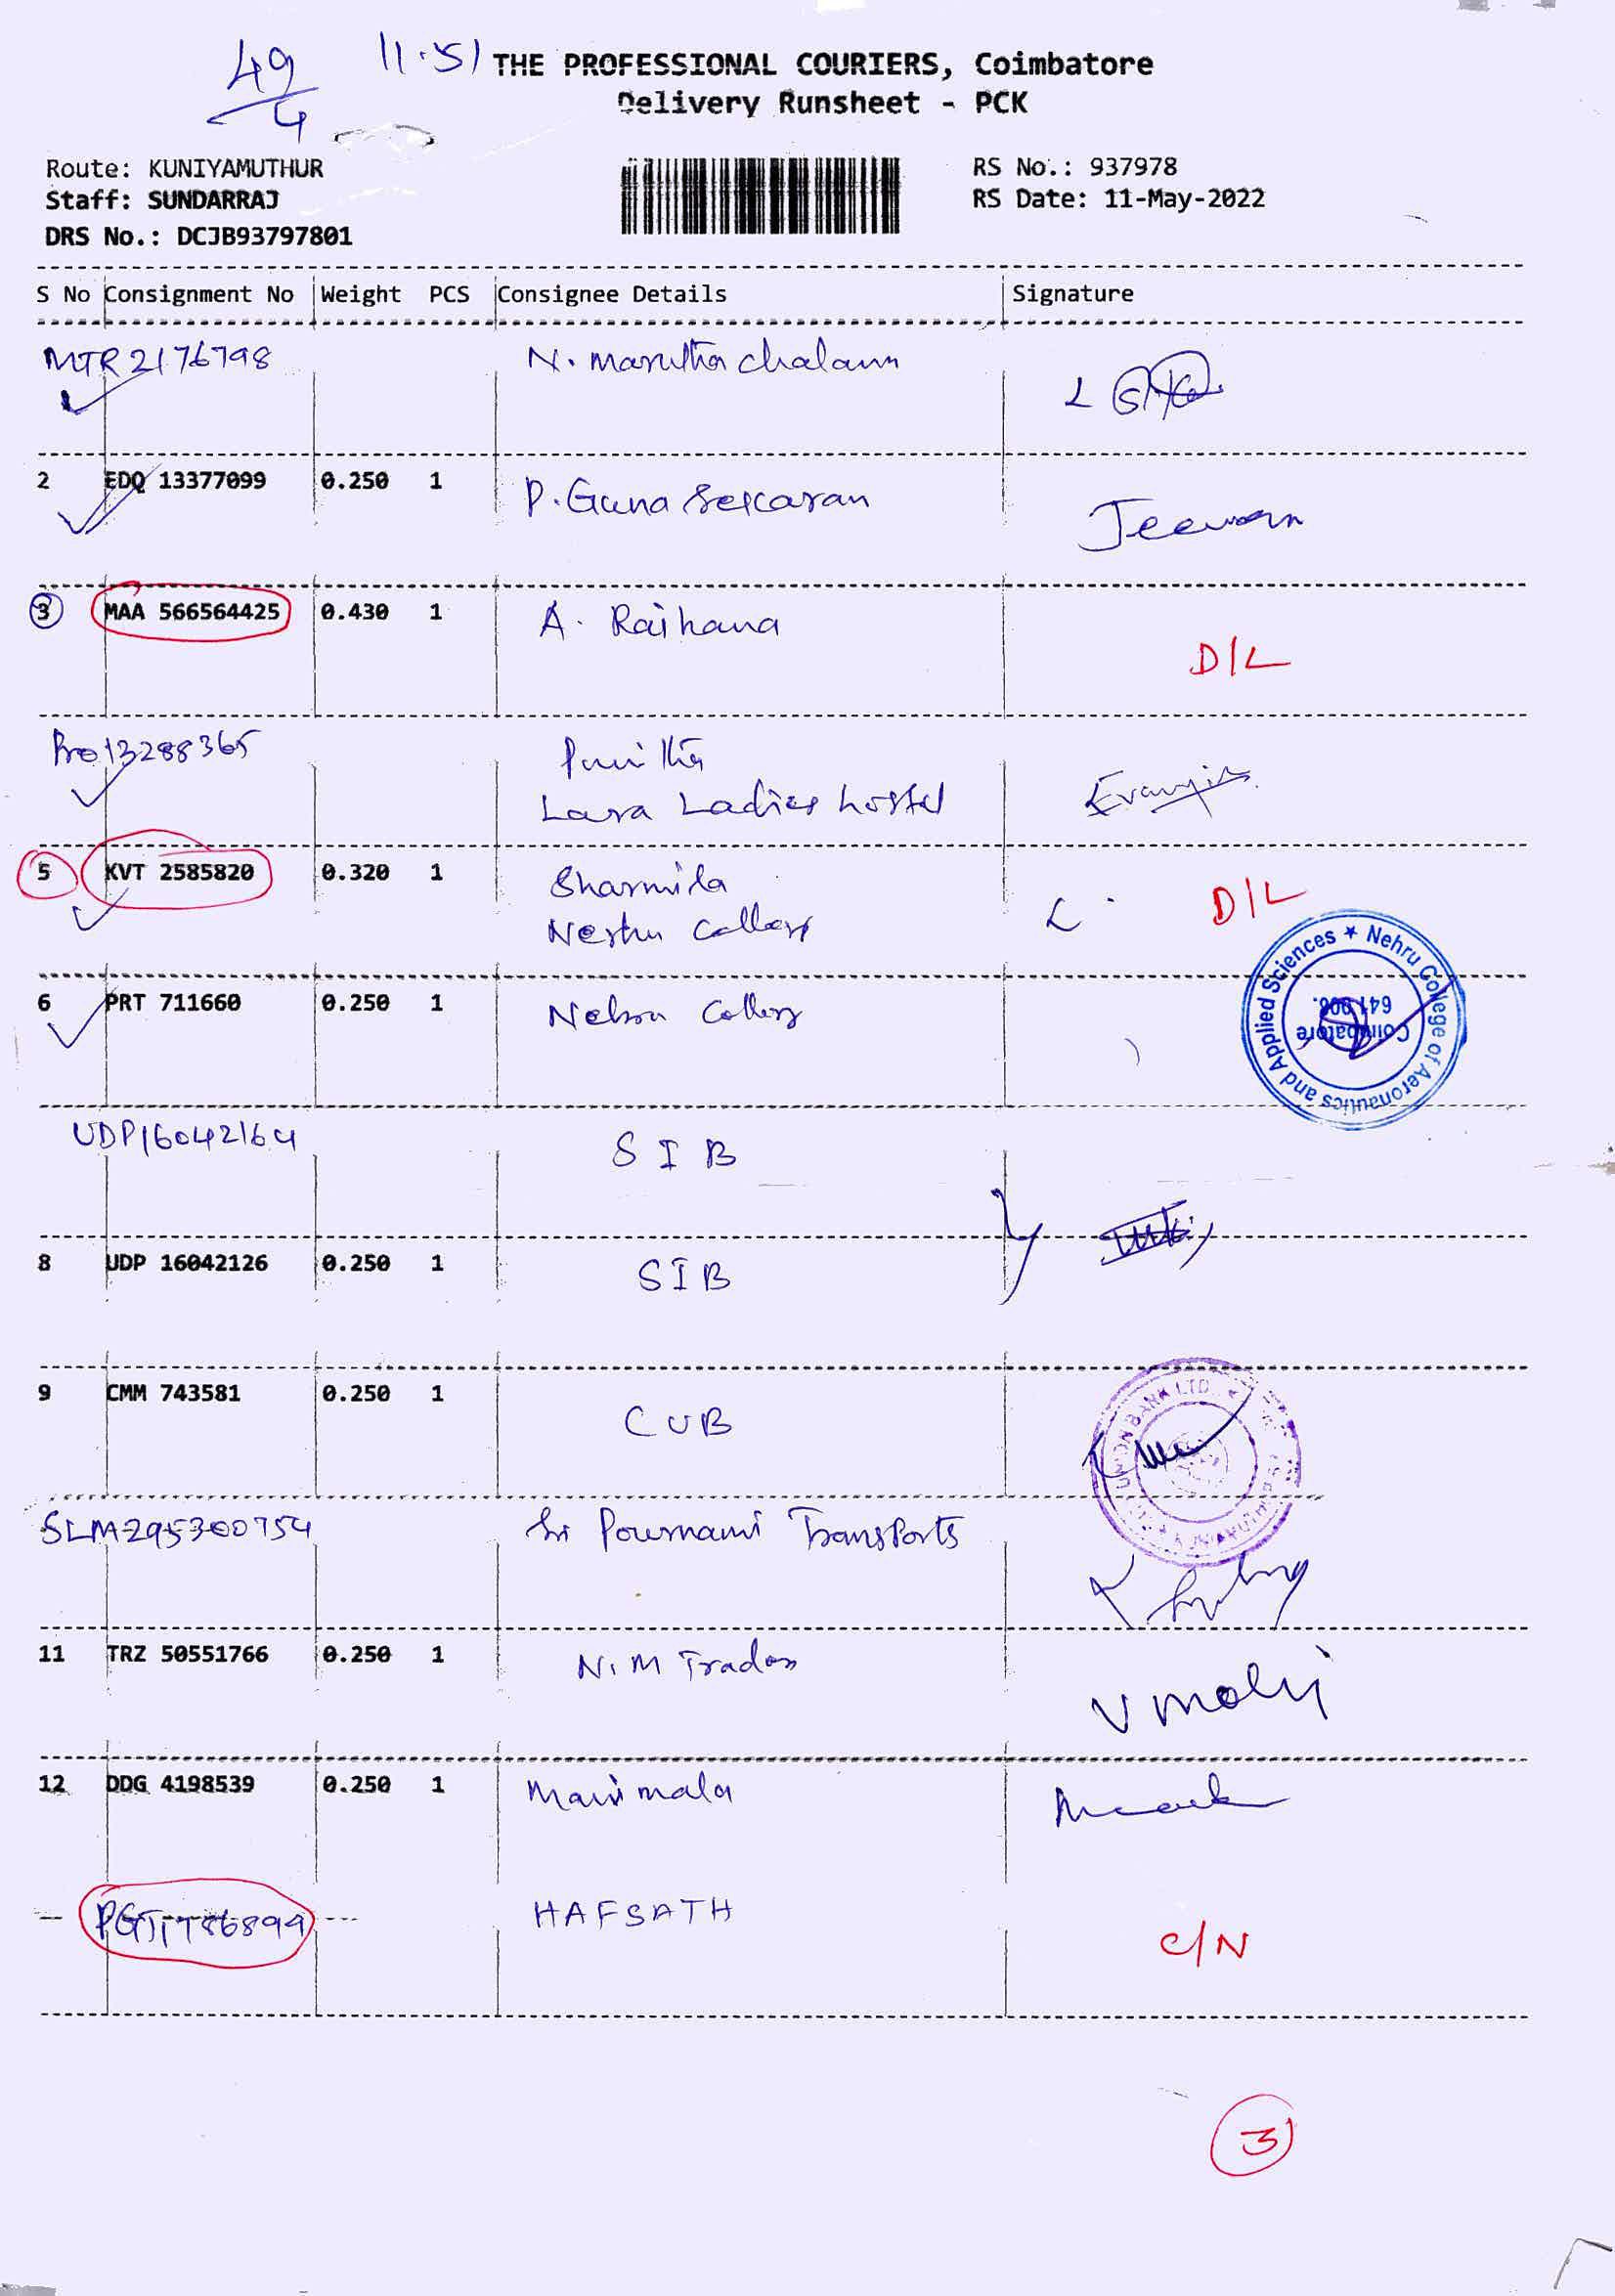 49/4 11.51 THE PROFESSIONAL COURIERS, Coimbatore
Delivery Runsheet - PCK
Route: KUNIYAMUTHUR RS No.: 937978
Staff: SUNDARRAJ RS Date: 11-May-2022
DRS No.: DCJB93797801
S No Consignment No Weight PCS Consignee Details Signature
MTR2176798 N. Marutha chalam
2 EDQ 13377099 0.250 1 P. Guna Sekaran Jeevan
3 MAA 566564425 0.430 1 A. Raihana
D/L
Pro13288365 Punitha
Lara Ladies hostel
5 KVT 2585820 0.320 1 Sharmila D/L
Nehru College
6 PRT 711660 0.250 1 Nehru College
Nehru College of Aeronautics and Applied Sciences
Coimbatore
UDP16042164 SIB
8 UDP 16042126 0.250 1 SIB
9 CMM 743581 0.250 1 CUB
UNION BANK LTD.
SLM295300754 Sri Pournami Transports
11 TRZ 50551766 0.250 1 N.M Traders
12 DDG 4198539 0.250 1 Manimala
HAFSATH
C/N
3